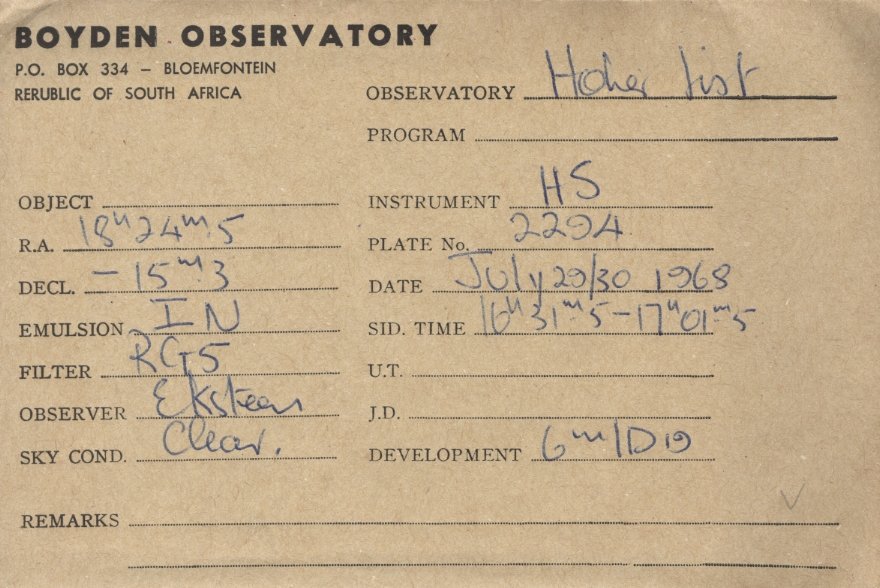 BOYDEN OBSERVATORY
P.O. BOX 334 – BLOEMFONTEIN
RERUBLIC OF SOUTH AFRICA
OBSERVATORY Hoher List
PROGRAM
OBJECT
R.A. 18ʰ24ᵐ.5
DECL. –15ᵐ.3
EMULSION IN
FILTER RG5
OBSERVER Eksteen
SKY COND. Clear.
INSTRUMENT HS
PLATE No. 2294
DATE July 29/30 1968
SID. TIME 16ʰ31ᵐ5–17ʰ01ᵐ5
U.T.
J.D.
DEVELOPMENT 6ᵐ/D19
REMARKS